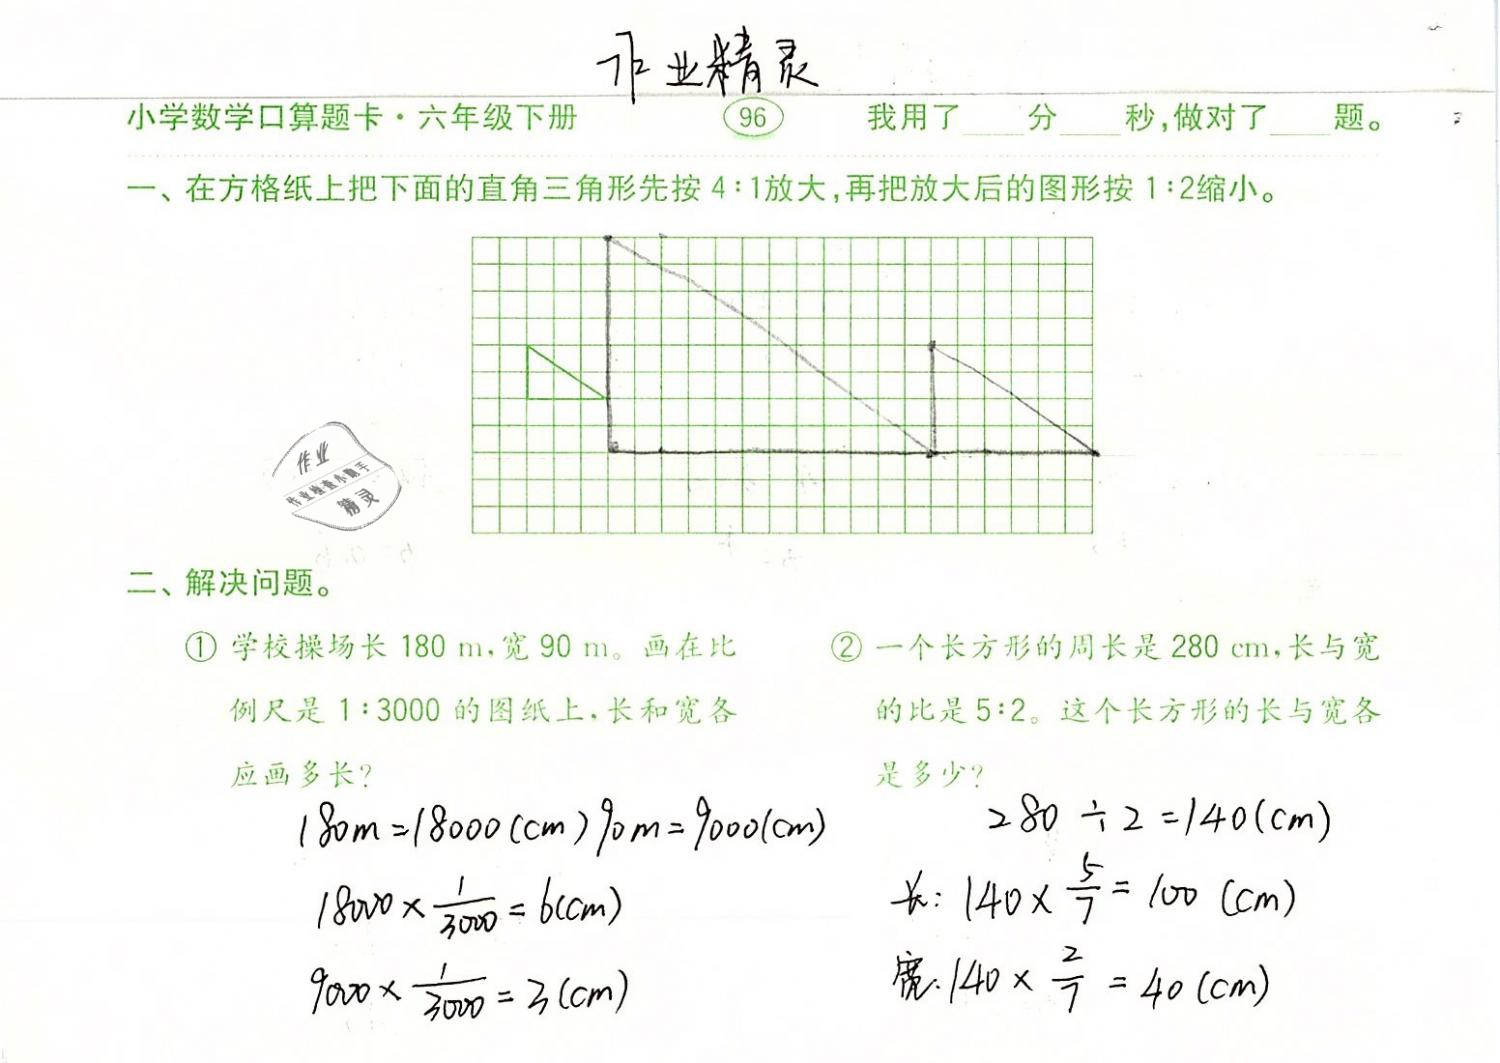 作业精灵
小学数学口算题卡·六年级下册 96 我用了____分____秒,做对了____题。
一、在方格纸上把下面的直角三角形先按 4:1放大,再把放大后的图形按 1:2缩小。
作业
作业检查小助手
精灵
二、解决问题。
① 学校操场长 180 m,宽 90 m。画在比
例尺是 1:3000 的图纸上,长和宽各
应画多长?
180m=18000(cm) 90m=9000(cm)
18000×1/3000=6(cm)
9000×1/3000=3(cm)
② 一个长方形的周长是 280 cm,长与宽
的比是 5:2。这个长方形的长与宽各
是多少?
280÷2=140(cm)
长:140×5/7=100(cm)
宽:140×2/7=40(cm)